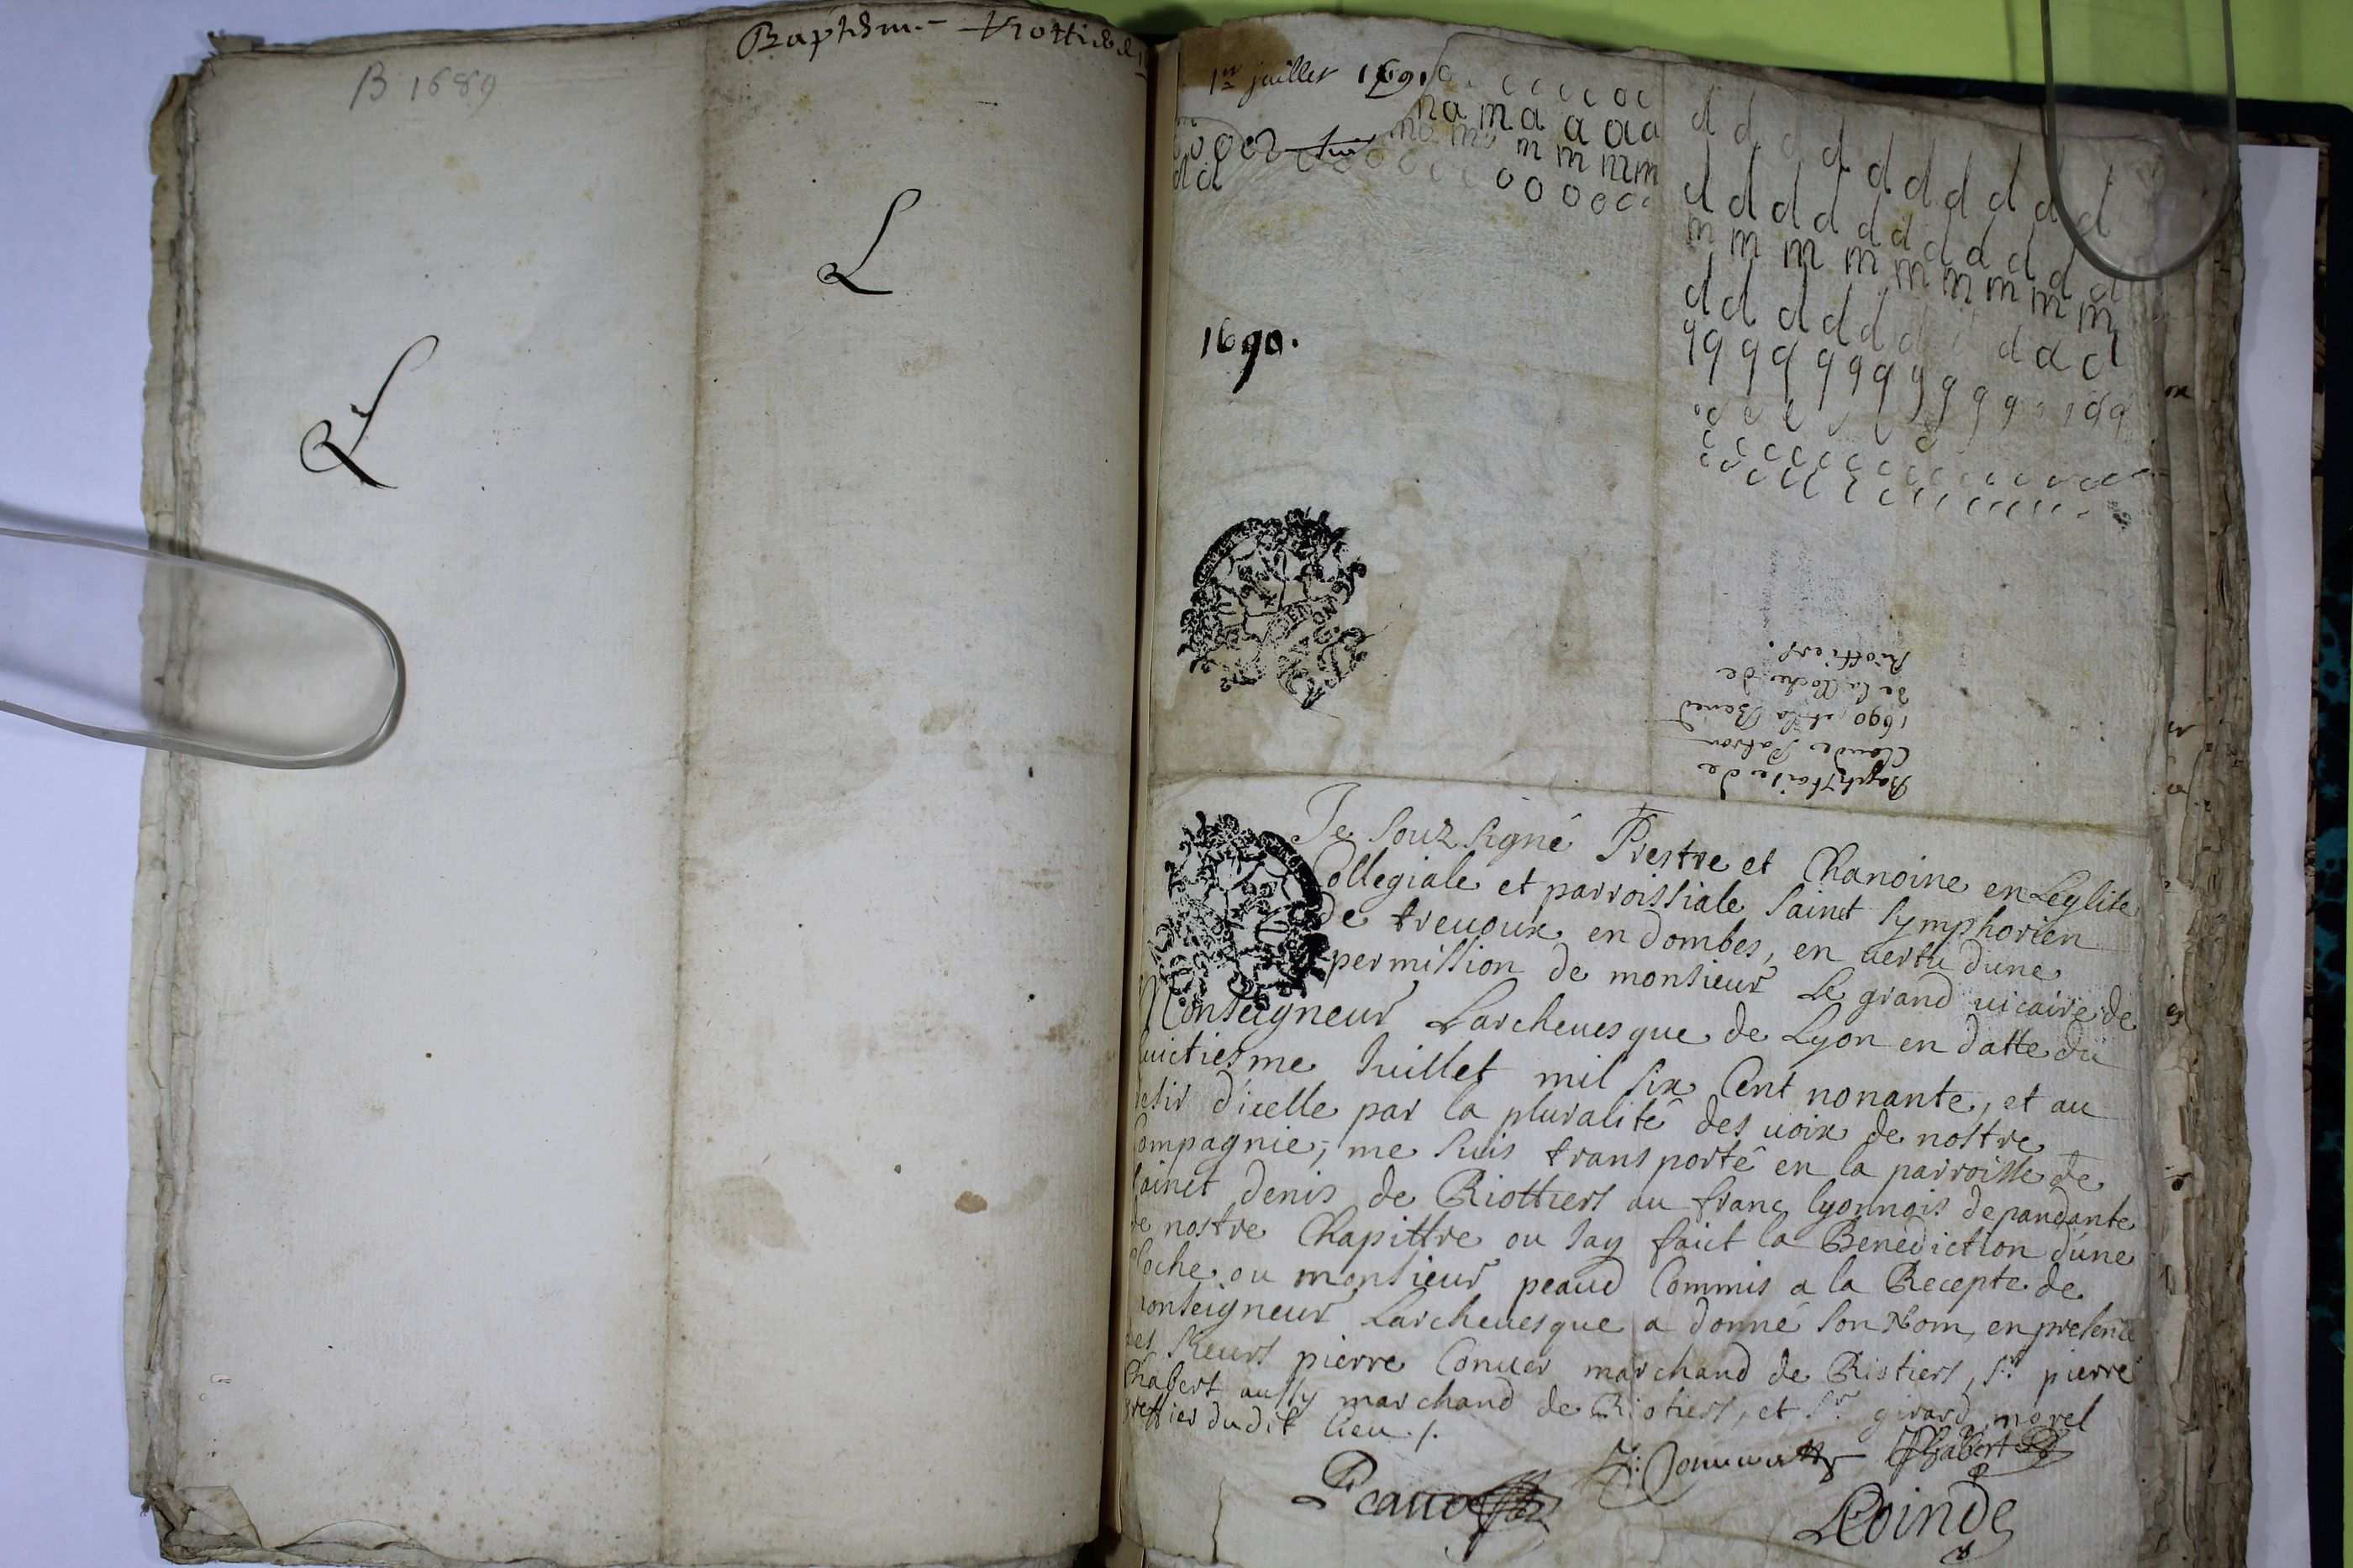 B 1689
Baptism
L
L
1er juillet 1691
n a m a a a a
m m m m
o o o o c c
d d
d d d d d d d d d d
d d d d d d d d d d d
m m m m m m m m m m
d d d d d d d d d
q q q q q q q q q q q q
c c c c c c c c c c c c
1690.
Baptistaire de
Claude Patron
1690 et la Bened
de la Cloche de
Riottiers.
Je souz signé Prestre et Chanoine en Leglise
Collegiale et parroissiale sainct symphorien
de treuoux en dombes, en uertu dune
permission de monsieur Le grand uicaire de
Monseigneur Larcheuesque de Lyon en datte du
huictiesme Juillet mil six Cent nonante, et au
desir d'icelle par la pluralité des uoix de nostre
Compagnie, me suis transporté en la parroisse de
sainct denis de Riottiers au franc lyonnois depandante
de nostre Chapittre ou Jay faict la Benediction d'une
Cloche ou monsieur peaud Commis a la Recepte de
monseigneur Larcheuesque a donné son Nom, en presence
des sieurs pierre Conuer marchand de Riotiers, sr pierre
Chabert aussy marchand de Riotiers, et sr girard morel
greffier dudit lieu ./.
Peaud
Chabert
LCoinde